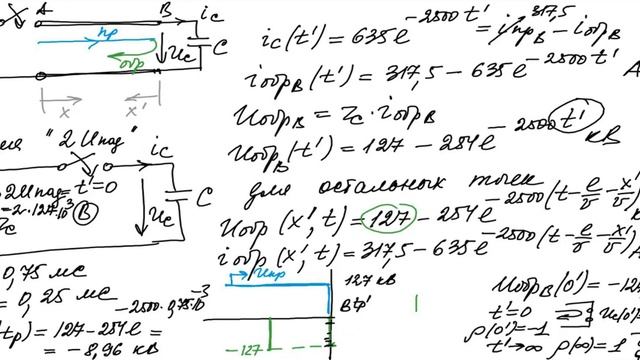 A B ic
пр
обр Uc C
x x'
"2Uпад" ic
2Uпад= t'=0
=2·127·10³ B Uc C
Zc
0,75 мс
= 0,25 мс
-2500·0,75·10⁻³
tp) = 127-254e =
= -8,96 кВ
ic(t') = 635e^-2500t' = iпрB - iобрB
317,5
iобрB(t') = 317,5 - 635e^-2500t' А
UобрB = Zc·iобрB
UобрB(t') = 127 - 254e^-2500t' кВ
для остальных точек
Uобр(x',t) = 127 - 254e^-2500(t-ℓ/v-x'/v)
iобр(x',t) = 317,5 - 635e^-2500(t-ℓ/v-x'/v) А
Uпр 127 кВ
-127
UобрB(0') = -12
t'=0 Uс(0')
ρ(0')=-1
t'→∞ ρ(∞)=1